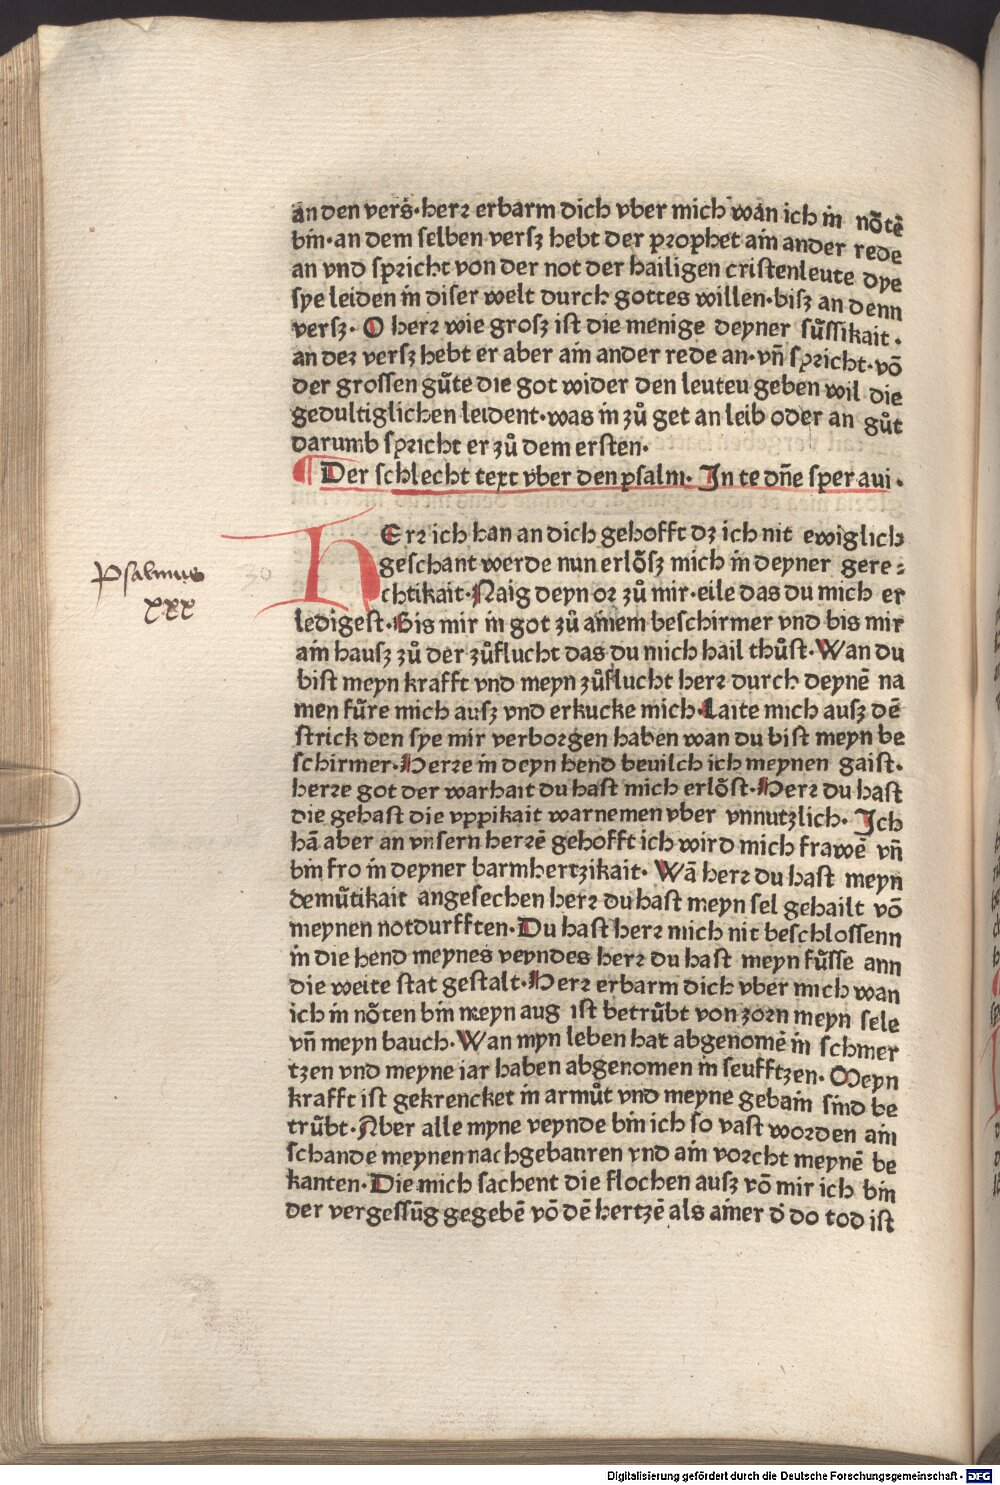 an den vers·herꝛ erbarm dich vber mich wan ich in nõtẽ
bin·an dem selben versz hebt der pꝛophet ain ander rede
an vnd spꝛicht von der not der hailigen cristenleute dye
sye leiden in diser welt durch gottes willen·bisz an denn
versz· O herꝛ wie grosz ist die menige deyner sůssikait·
an deꝛ versz hebt er aber ain ander rede an·vñ spꝛicht·võ
der grossen gůte die got wider den leuteu geben wil die
gedultiglichen leident·was in zů get an leib oder an gůt
darumb spꝛicht er zů dem ersten·
¶ Der schlecht text vber den psalm· In te dñe speraui·
HErꝛ ich han an dich gehofft dz ich nit ewiglich
Psalmus
xxx
30
geschant werde nun erlõsz mich in deyner gere⸗
chtikait·Naig deyn oꝛ zů mir·eile das du mich er
ledigest·Bis mir in got zů ainem beschirmer vnd bis mir
ain hausz zů der zůflucht das du mich hail thůst·Wan du
bist meyn krafft vnd meyn zůflucht herꝛ durch deynẽ na
men fůre mich ausz vnd erkucke mich·Laite mich ausz dẽ
strick den sye mir verboꝛgen haben wan du bist meyn be
schirmer·Herꝛe in deyn hend beuilch ich meynen gaist·
herꝛe got der warhait du hast mich erlõst·Herꝛ du hast
die gehast die vppikait warnemen vber vnnutzlich· Ich
hã aber an vnsern herꝛẽ gehofft ich wird mich frawẽ vñ
bin fro in deyner barmhertzikait· Wã herꝛ du hast meyn
demůtikait angesechen herꝛ du hast meyn sel gehailt võ
meynen notdurfften·Du hast herꝛ mich nit beschlossenn
in die hend meynes veyndes herꝛ du hast meyn fůsse ann
die weite stat gestalt·Herꝛ erbarm dich vber mich wan
ich in nõten bin meyn aug ist betrůbt von zoꝛn meyn sele
vñ meyn bauch·Wan myn leben hat abgenomẽ in schmer
tzen vnd meyne iar haben abgenomen in seufftzen·Meyn
krafft ist gekrencket in armůt vnd meyne gebain sind be
trůbt·Aber alle myne veynde bin ich so vast woꝛden ain
schande meynen nachgebauren vnd ain voꝛcht meynẽ be
kanten·Die mich sachent die flochen ausz võ mir ich bin
der vergessũg gegebẽ võ dẽ hertzẽ als ainer d̕ do tod ist
Digitalisierung gefördert durch die Deutsche Forschungsgemeinschaft - DFG